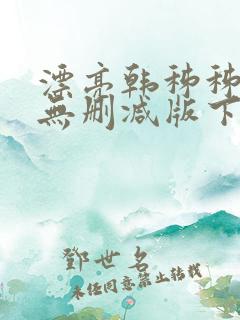 漂亮韩秭秭
無删减版下
鄧世名
未经同意禁止转载